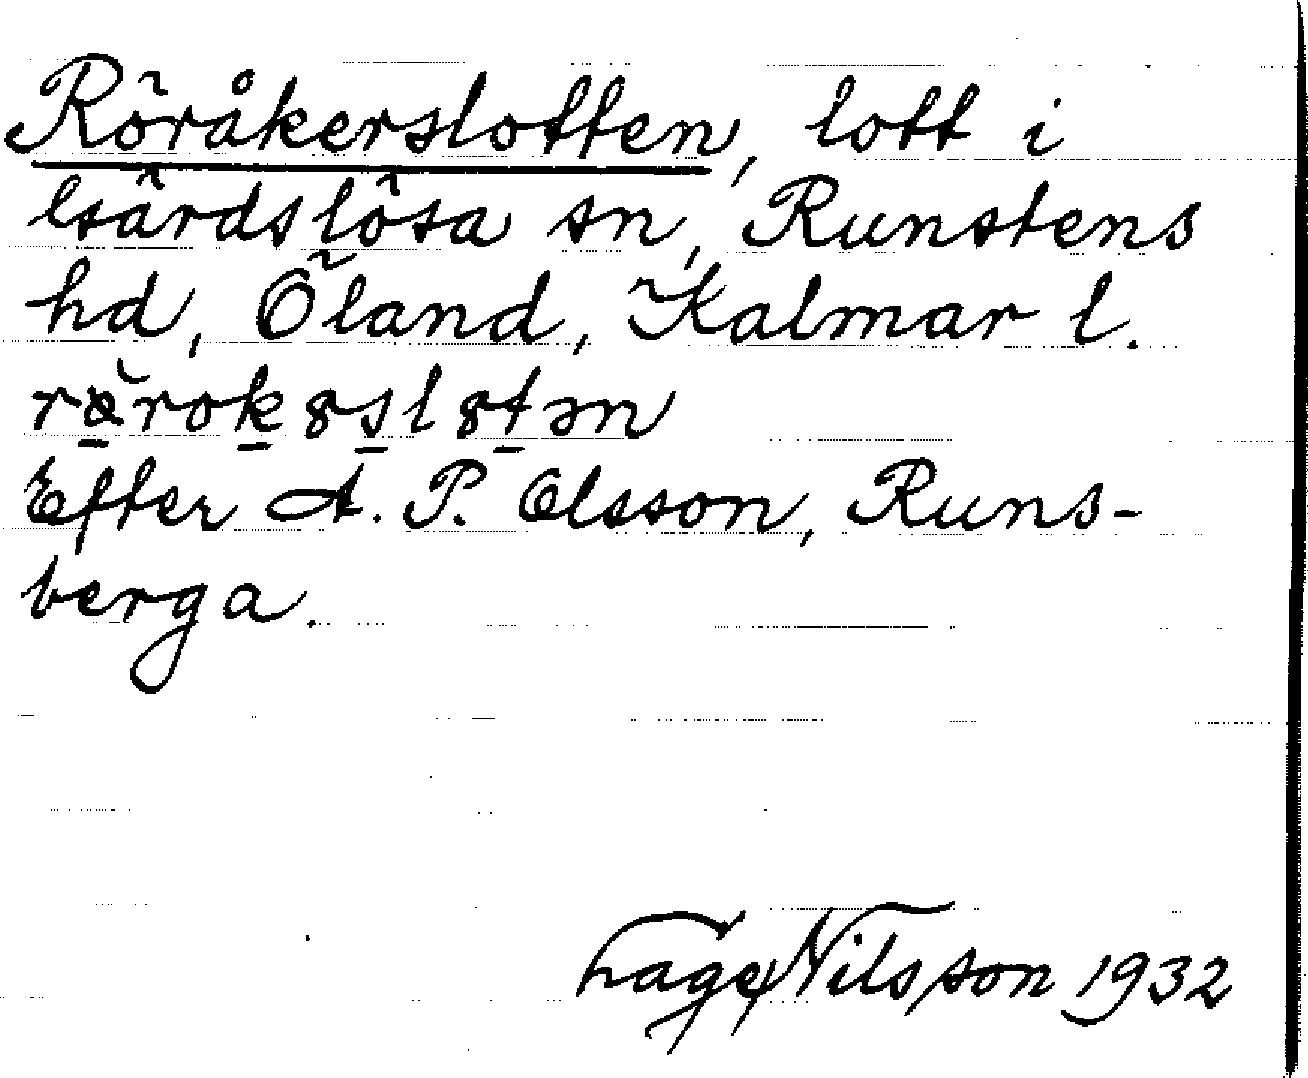 Röråkerslotten, lott i
Gärdslösa sn, Runstens
hd, Öland, Kalmar l.
Efter A. P. Olsson, Runs-
berga.
Tage Nilsson 1932